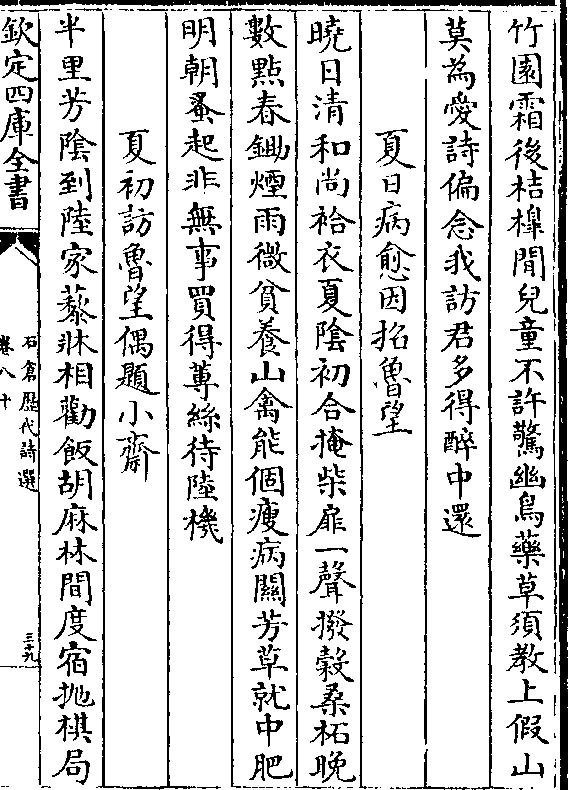 竹園霜後桔橰閒兒童不許驚幽鳥藥草須教上假山
莫為愛詩偏念我訪君多得醉中還
夏日病愈因招魯望
曉日清和尚袷衣夏陰初合掩柴扉一聲撥穀桑柘晚
數點春鋤煙雨微貧養山禽能個瘦病關芳草就中肥
明朝蚤起非無事買得蓴絲待陸機
夏初訪魯望偶題小齋
半里芳陰到陸家藜牀相勸飯胡麻林間度宿抛棋局
欽定四庫全書
石倉歷代詩選
卷八十
三十九